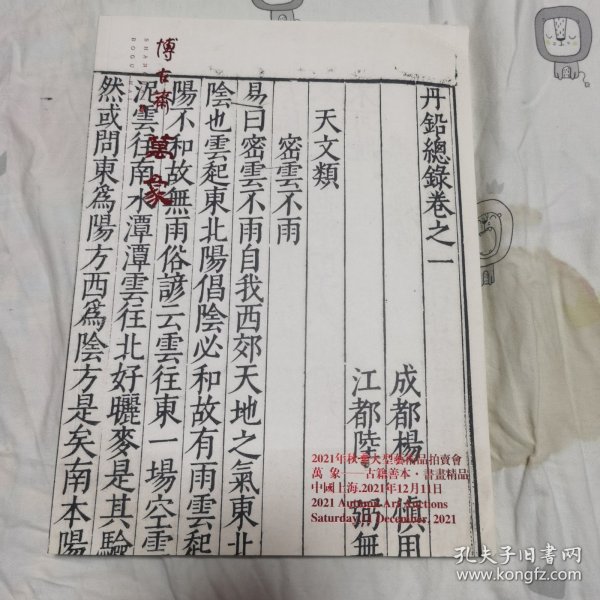 博古斋
萬象
丹鉛總錄卷之一
成都楊 慎用
江都陸 弼無
天文類
密雲不雨
易曰密雲不雨自我西郊天地之氣東北
陰也雲起東北陽倡陰必和故有雨雲起
陽不和故無雨俗諺云雲往東一場空雲
往南水潭潭雲往北好曬麥是其驗
然或問東為陽方西為陰方是矣南本陽
2021年秋季大型藝術品拍賣會
萬象——古籍善本·書畫精品
中國上海.2021年12月11日
2021 Autumn Art Auctions
Saturday,11 December, 2021
孔夫子旧书网
www.kongfz.com